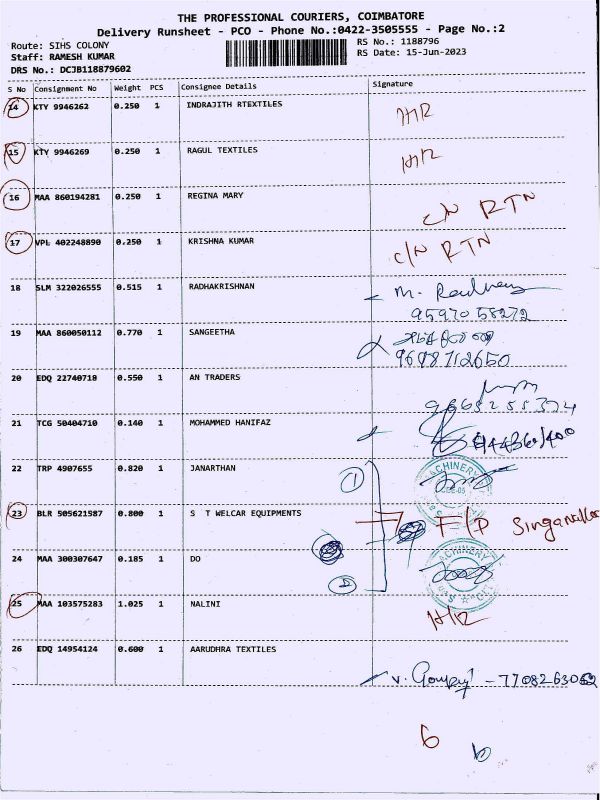 THE PROFESSIONAL COURIERS, COIMBATORE
Delivery Runsheet - PCO - Phone No.:0422-3505555 - Page No.:2
Route: SIHS COLONY
Staff: RAMESH KUMAR
DRS No.: DCJB118879602
RS No.: 1188796
RS Date: 15-Jun-2023
S No Consignment No Weight PCS Consignee Details Signature
14 KTY 9946262 0.250 1 INDRAJITH RTEXTILES HR
15 KTY 9946269 0.250 1 RAGUL TEXTILES HR
16 MAA 860194281 0.250 1 REGINA MARY C/N RTN
17 VPL 402248890 0.250 1 KRISHNA KUMAR C/N RTN
18 SLM 322026555 0.515 1 RADHAKRISHNAN M.
9597058272
19 MAA 860050112 0.770 1 SANGEETHA
9698712650
20 EDQ 22740718 0.550 1 AN TRADERS
21 TCG 50404710 0.140 1 MOHAMMED HANIFAZ
22 TRP 4907655 0.820 1 JANARTHAN 1
MACHINERY
23 BLR 505621587 0.800 1 S T WELCAR EQUIPMENTS F/P
24 MAA 300307647 0.185 1 DO 2
MACHINERY
25 MAA 103575283 1.025 1 NALINI HR
26 EDQ 14954124 0.600 1 AARUDHRA TEXTILES V.
6 6